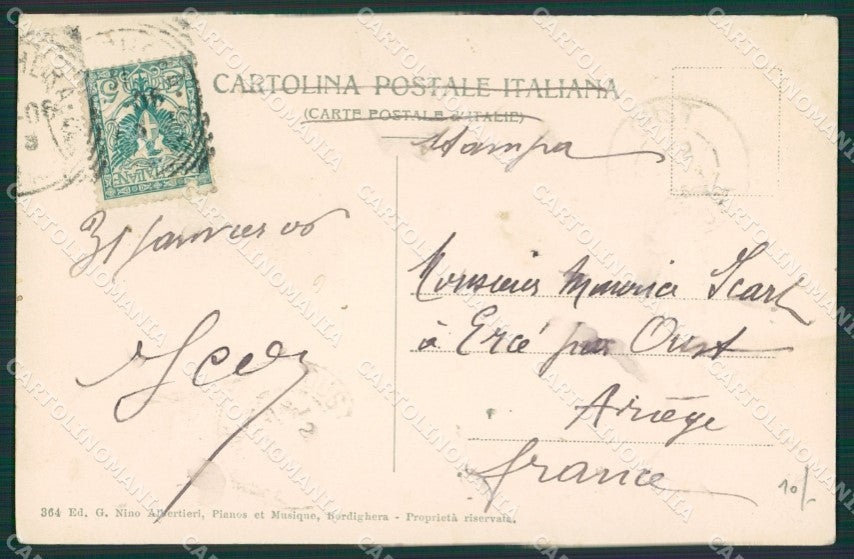 CARTOLINA POSTALE ITALIANA
(CARTE POSTALE d'ITALIE)
Stampa
31 Janvier 06
Monsieur Maurice Icart
à Ercé par Oust
Ariège
France
10/-
364 Ed. G. Nino Albertieri, Pianos et Musique, Bordighera - Proprietà riservata.
CARTOLINOMANIA